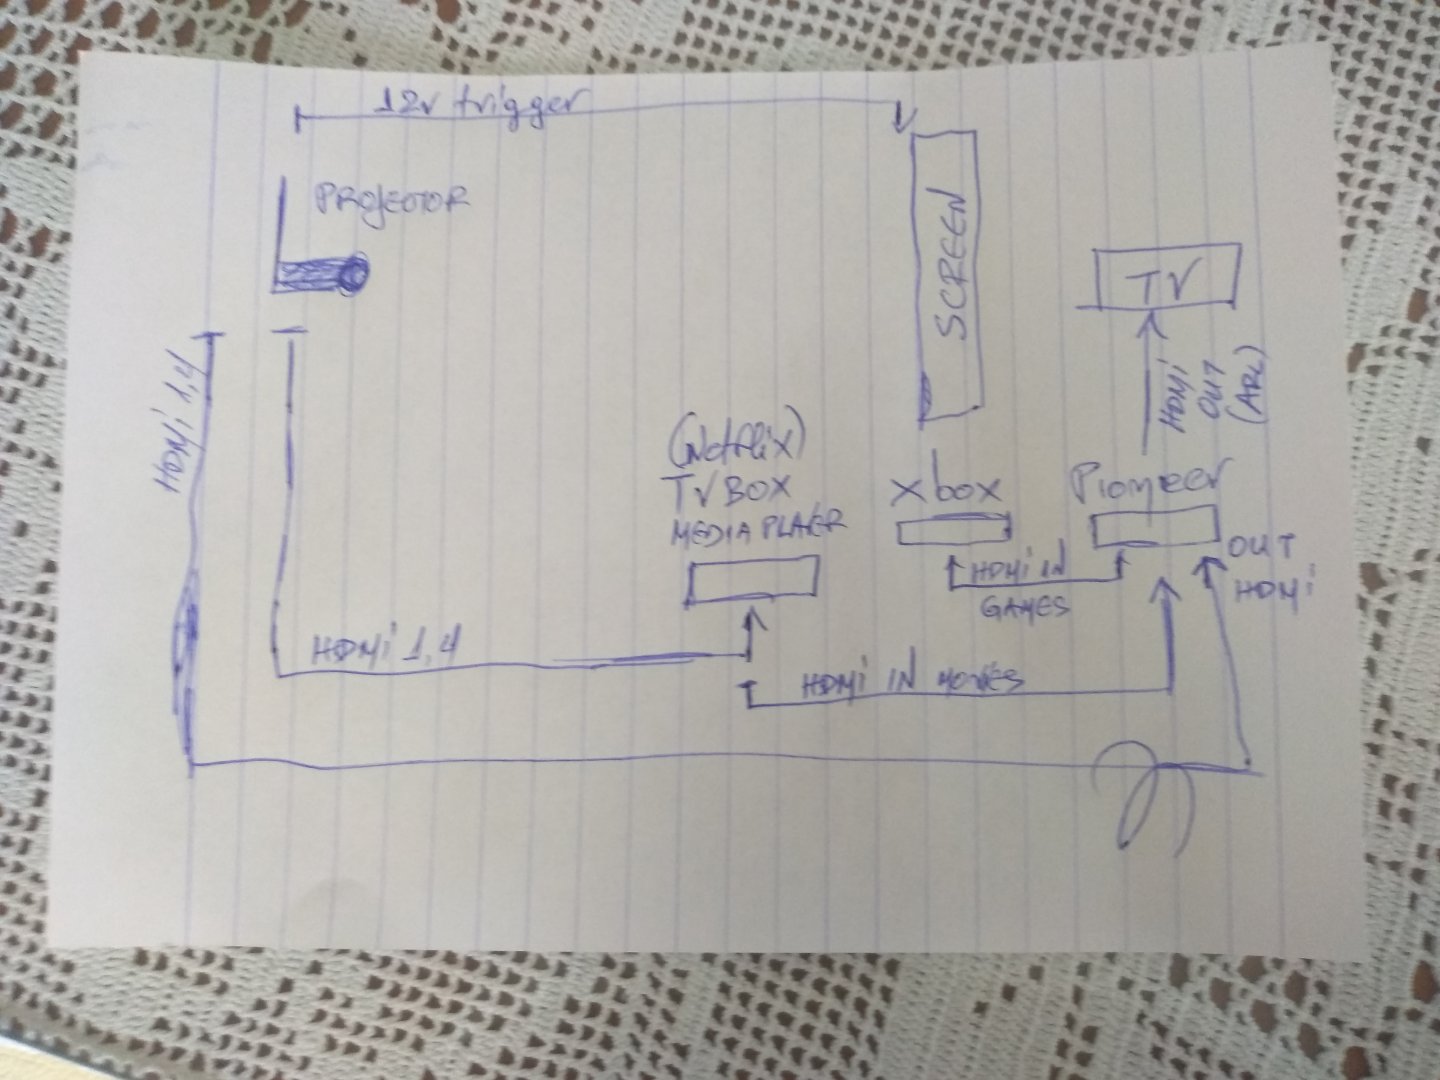 12v trigger
PROJECTOR
SCREEN
TV
HDMi 1,4
HDMi
OUT
(ARC)
(Netflix)
TV BOX
MEDIA PLAYER
Xbox
Pioneer
HDMi IN
GAMES
OUT
HDMi
HDMi 1,4
HDMi IN MOVIES